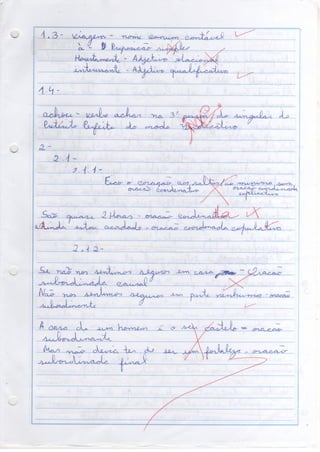 1.3- viagem - nome comum contável
à - Preposição simples
Honestamente - Adjetivo relacional
interessante - Adjetivo qualificativo
1.4-
achou - verbo achar na 3ª pessoa do singular do
Pretérito Perfeito do modo indicativo
2-
2.1-
2.1.1-
Fico o coração aos saltos/
oração coordenativa
oração coordenada
explicativa
São quase 2 Horas - oração coordenativa
Ainda estou acordado - oração coordenada copulativa
2.1.2-
Se não nos sentimos seguros em casa - Oração
subordinada causal
Não nos sentimos seguros em parte nenhuma - oração
subordinante
A casa de um homem é o seu castelo - oração
subordinante
Mas não devia ter de ser um fortaleza - oração
subordinada final